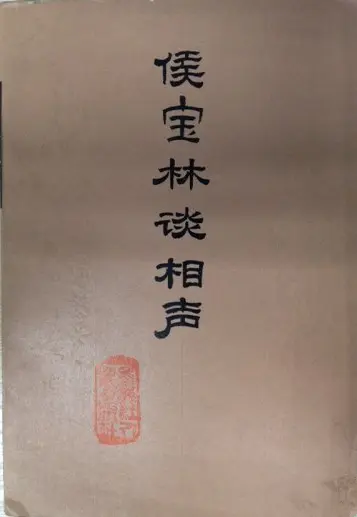 侯宝林谈相声